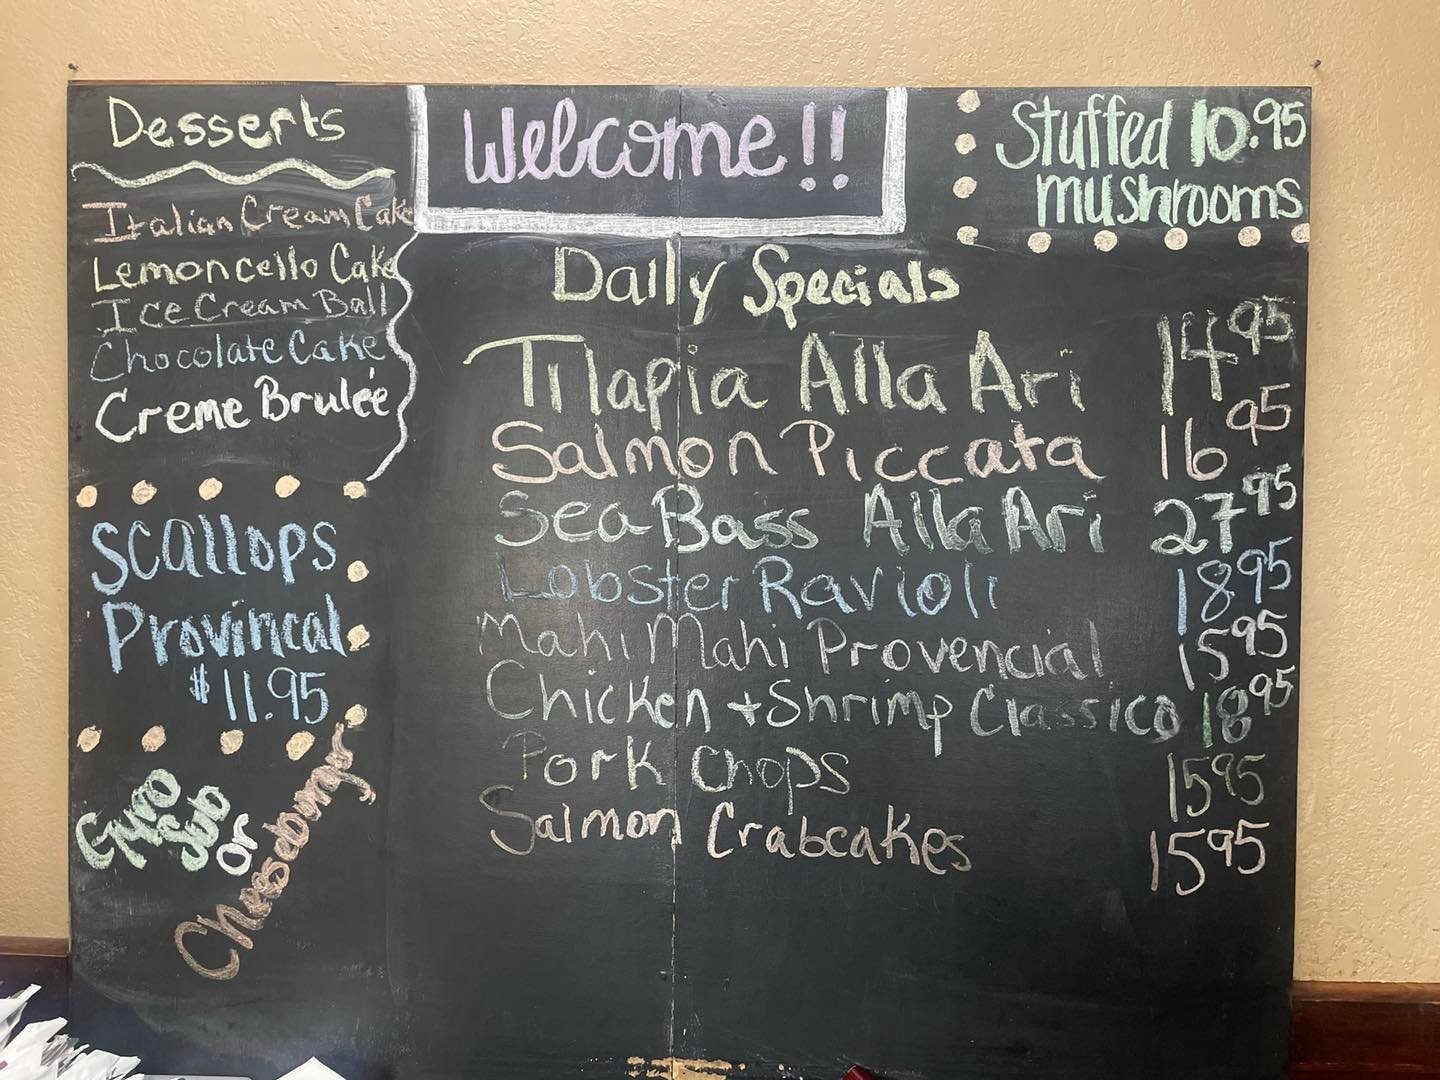 Desserts
Italian Cream Cake
Lemoncello Cake
Ice Cream Ball
Chocolate Cake
Creme Brulée
Scallops
Provincal
$11.95
Gyro
Sub
or
Cheeseburger
Welcome!!
Stuffed 10.95
mushrooms
Daily Specials
Tilapia Alla Ari 14.95
Salmon Piccata 16 95
Sea Bass Alla Ari 27.95
Lobster Ravioli 18.95
Mahi Mahi Provencial 15 95
Chicken + Shrimp Classico 18 95
Pork Chops 15 95
Salmon Crabcakes 15 95